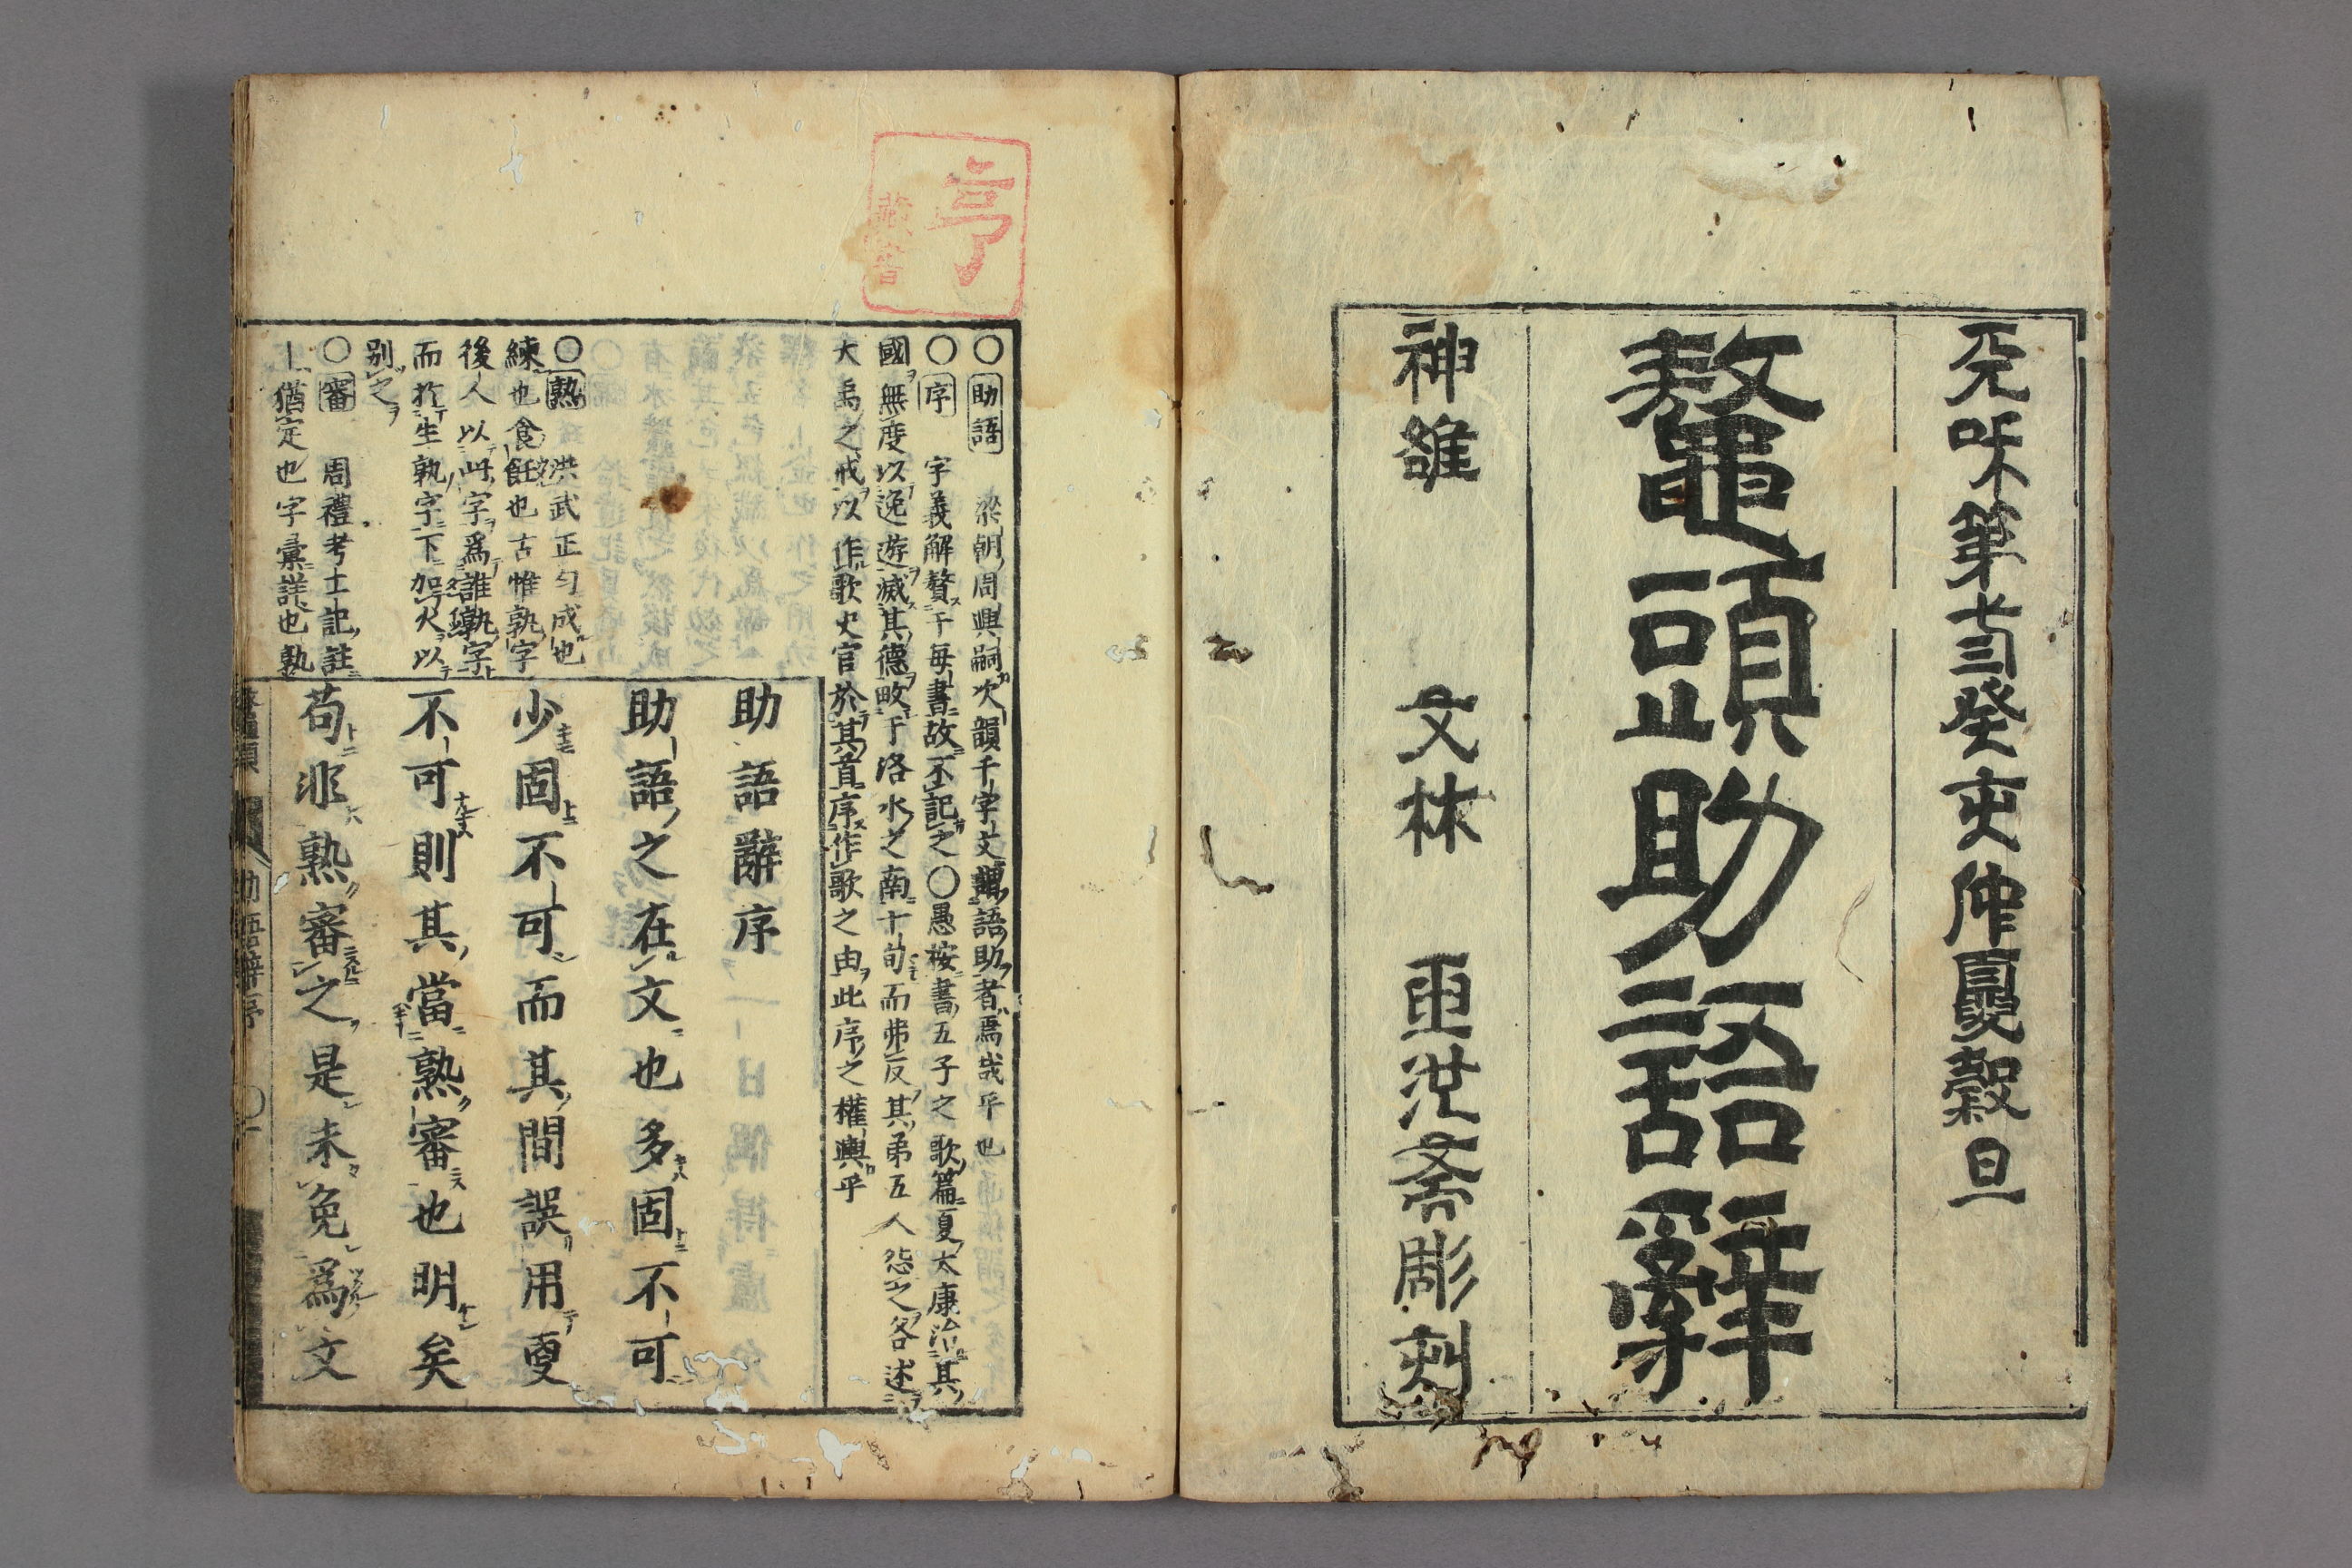 天和第三癸亥仲夏穀旦
鼇頭助語辭
神雒 文林 重洪斎彫刻
亨
藏書
〇助語 梁朝周興嗣次韻千字文謂語助者焉哉乎也
〇序 字義解贅于毎書故不記之〇愚按書五子之歌篇夏太康治其
國無度以逸遊滅其德畋于洛水之南十旬而弗反其弟五人怨之各述
大禹之戒以作歌史官於其首序作歌之由此序之權輿乎
助語辭序
助語之在文也多固不可
少固不可而其間誤用更
不可則其當熟審也明矣
苟非熟審之是未免爲文
〇熟 洪武正匀成也
練也食飪也古惟孰字
後人以此字爲誰孰字
而於生孰字下加火以
別之
〇審 周禮考工記註
丨猶定也字彙詳也熟
鼇頭 助語辭序 〇一